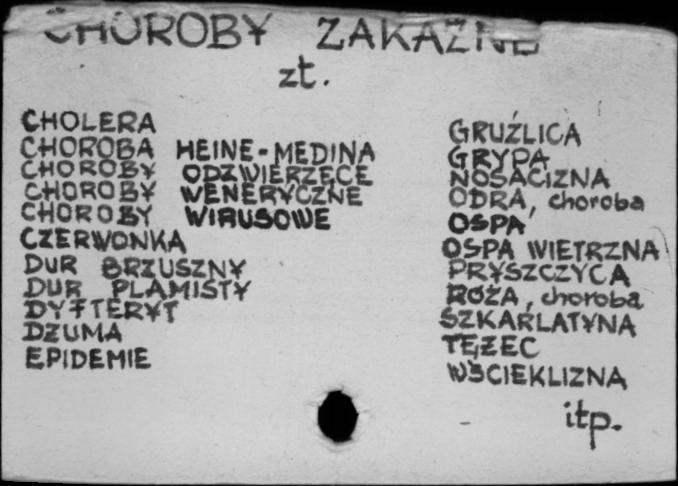 CHOROBY ZAKAŹNE
zt.
CHOLERA
CHOROBA HEINE-MEDINA
CHOROBY ODZWIERZĘCE
CHOROBY WENERYCZNE
CHOROBY WIRUSOWE
CZERWONKA
DUR BRZUSZNY
DUR PLAMISTY
DYFTERYT
DŻUMA
EPIDEMIE
GRUŹLICA
GRYPA
NOSACIZNA
ODRA, choroba
OSPA
OSPA WIETRZNA
PRYSZCZYCA
RÓŻA, choroba
SZKARLATYNA
TĘŻEC
WŚCIEKLIZNA
itp.